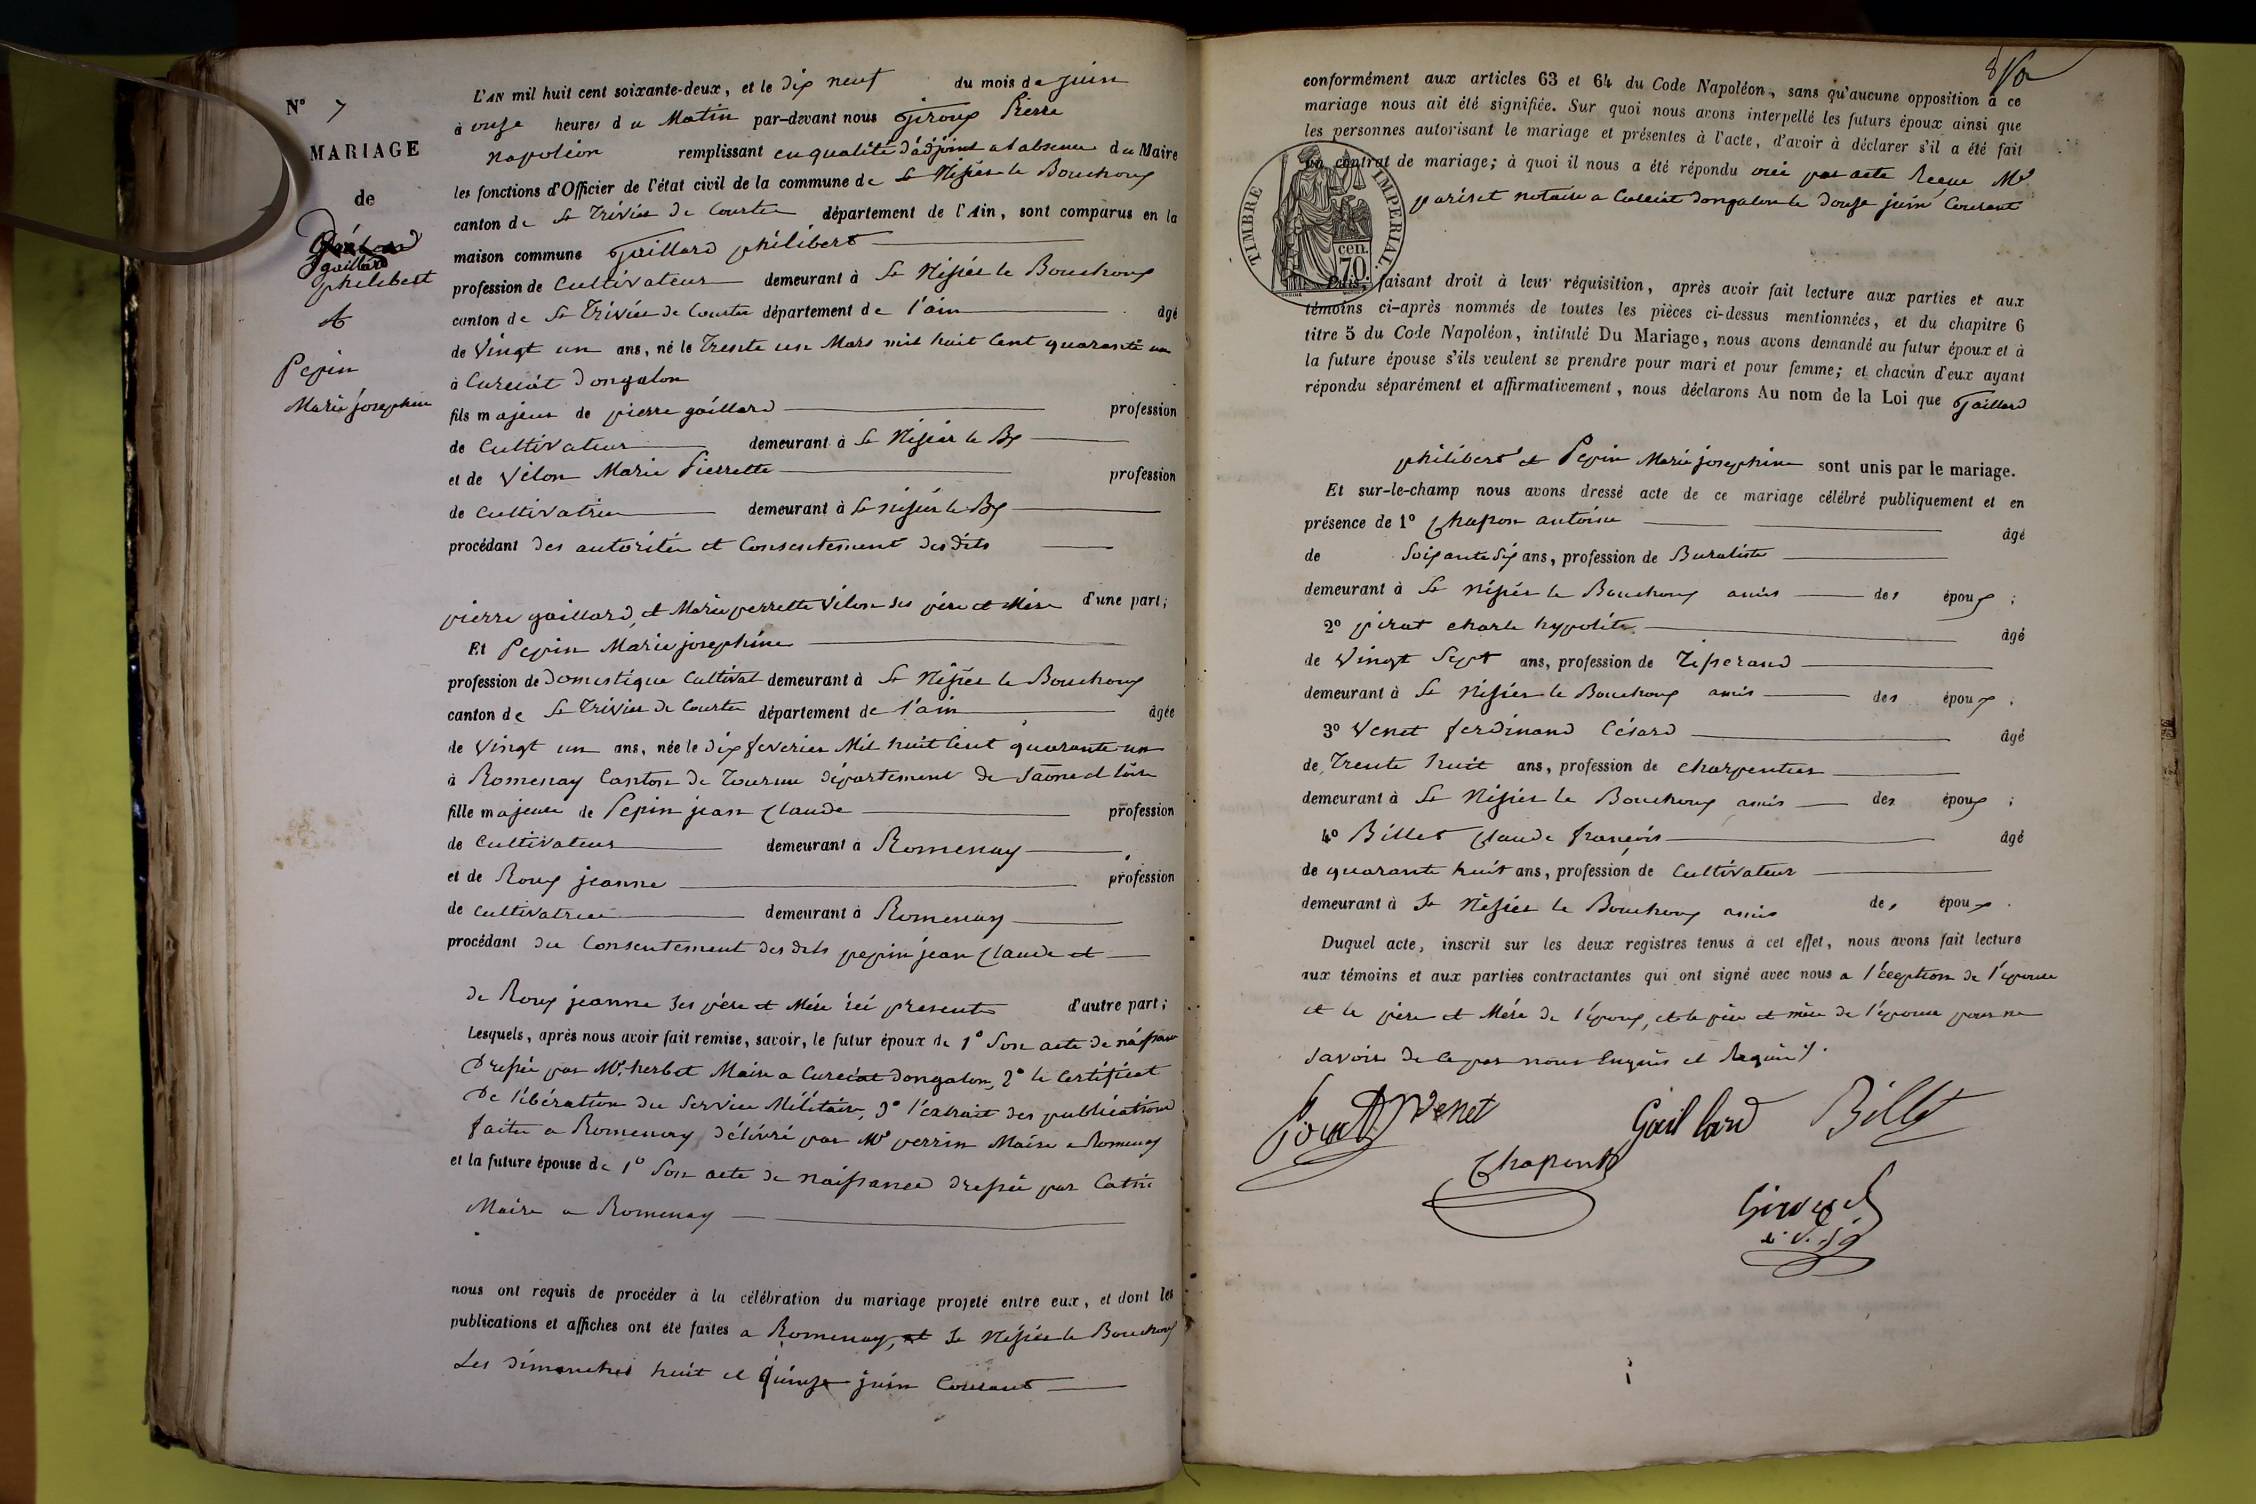 N° 7
MARIAGE
de
gaillard
philibert
&
Pepin
Marie josephine
L'AN mil huit cent soixante-deux, et le dix neuf du mois de juin
à onze heures du Matin par-devant nous Giroux Pierre
napoléon remplissant en qualité d'adjoint a l absence du Maire
les fonctions d'Officier de l'état civil de la commune de St Nisier le Bouchoux
canton de St Trivier de Courtes département de l'Ain, sont comparus en la
maison commune Gaillard philibert
profession de Cultivateur demeurant à St Nisier le Bouchoux
canton de St Trivier de Courtes département de l'ain âgé
de Vingt un ans, né le Trente un Mars mil huit Cent quarante un
à Curciat Dongalon
fils majeur de pierre gaillard profession
de Cultivateur demeurant à St Nisier le Bx
et de Vélon Marie Pierrette profession
de Cultivatrice demeurant à St nisier le Bx
procédant des autorités et Consentement des dits
pierre gaillard, et Marie perrette Vélon ses père et Mère d'une part;
Et Pepin Marie josephine
profession de Domestique Cultivat demeurant à St Nisier le Bouchoux
canton de St Trivier de Courtes département de l'ain âgée
de Vingt un ans, née le dix feverier Mil huit Cent quarante un
à Romenay Canton de Tournu département de Saône et loire
fille majeure de Pepin jean Claude profession
de Cultivateur demeurant à Romenay
et de Roux jeanne profession
de Cultivatrice demeurant à Romenay
procédant du Consentement des dits pepin jean Claude et
de Roux jeanne ses père et Mère ici presents d'autre part;
Lesquels, après nous avoir fait remise, savoir, le futur époux de 1° Son acte de naissance
Dressée par Mr. herbet Maire a Curciat Dongalon, 2° le Certificat
De libération du Service Militaire, 3° l'extrait des publications
faites a Romenay délivré par Mr perrin Maire a Romenay
et la future épouse de 1° Son acte de naissance dressée par Catin
Maire a Romenay
nous ont requis de procéder à la célébration du mariage projeté entre eux, et dont les
publications et affiches ont été faites a Romenay, et St Nisier le Bouchoux
Les dimanches huit et quinze juin Courant
conformément aux articles 63 et 64 du Code Napoléon, sans qu'aucune opposition à ce
mariage nous ait été signifiée. Sur quoi nous avons interpellé les futurs époux ainsi que
les personnes autorisant le mariage et présentes à l'acte, d'avoir à déclarer s'il a été fait
un contrat de mariage; à quoi il nous a été répondu oui par acte Reçue Me
pariset notaire a Curciat Dongalon le douze juin Courant
TIMBRE IMPERIAL.
cen.
70.
Puis, faisant droit à leur réquisition, après avoir fait lecture aux parties et aux
témoins ci-après nommés de toutes les pièces ci-dessus mentionnées, et du chapitre 6
titre 5 du Code Napoléon, intitulé Du Mariage, nous avons demandé au futur époux et à
la future épouse s'ils veulent se prendre pour mari et pour femme; et chacun d'eux ayant
répondu séparément et affirmativement, nous déclarons Au nom de la Loi que Gaillard
philibert et Pepin Marie josephine sont unis par le mariage.
Et sur-le-champ nous avons dressé acte de ce mariage célébré publiquement et en
présence de 1° Chapon antoine âgé
de Soixante Six ans, profession de Buraliste
demeurant à St Nisier le Bouchoux amis des époux;
2° pirat charle hypolite âgé
de Vingt Sept ans, profession de Tisserand
demeurant à St Nisier le Bouchoux amis des époux;
3° Venet ferdinand César âgé
de Trente huit ans, profession de charpentier
demeurant à St Nisier le Bouchoux amis des époux;
4° Billet Claude françois âgé
de quarante huit ans, profession de Cultivateur
demeurant à St Nisier le Bouchoux amis des époux.
Duquel acte, inscrit sur les deux registres tenus à cet effet, nous avons fait lecture
aux témoins et aux parties contractantes qui ont signé avec nous a l'éception de l'epouse
et le père et Mére de l'époux, et le père et mère de l'épouse pour ne
savoir de ce par nous Enquis et Requis.
Venet Gaillard Billet
Chapon